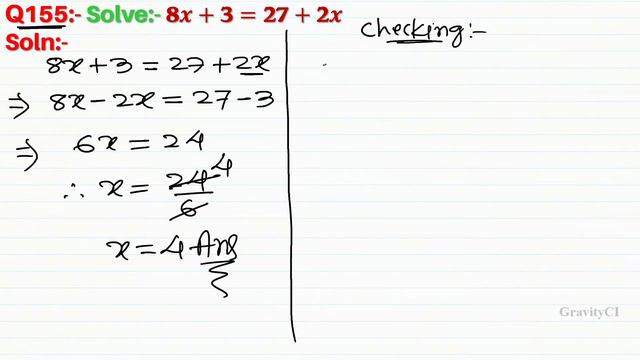 Q155:- Solve:- 8x + 3 = 27 + 2x
Soln:-
8x + 3 = 27 + 2x
⇒ 8x - 2x = 27 - 3
⇒ 6x = 24
∴ x = 24/6 4
x = 4 Ans
Checking:-
GravityCI